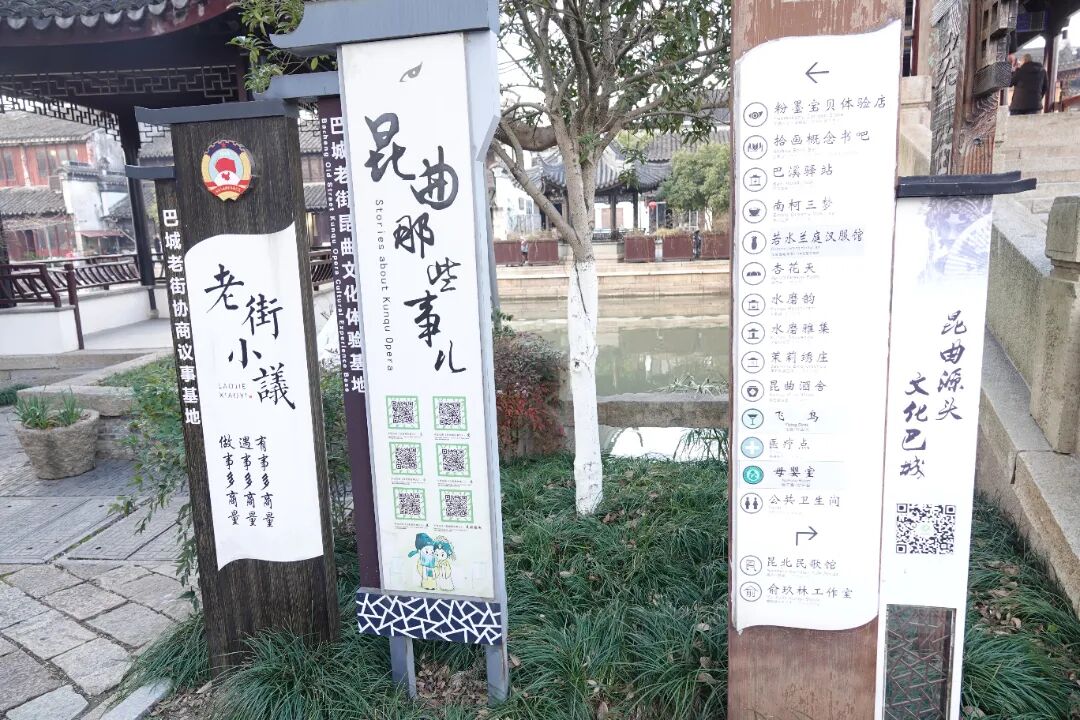 巴城老街协商议事基地
老街小議
LAOJIE
XIAOYI
有事多商量
遇事多商量
做事多商量
巴城老街昆曲文化体验基地
Bacheng Old Street Kunqu Opera Cultural Experience Base
昆曲那些事儿
Stories about Kunqu Opera
粉墨宝贝体验店
拾画概念书吧
巴溪驿站
南柯三梦
若水兰庭汉服馆
杏花天
水磨韵
水磨雅集
茉莉绣庄
昆曲酒舍
飞鸟
Flying Birds
医疗点
母婴室
公共卫生间
昆北民歌馆
俞玖林工作室
昆曲源头
文化巴城